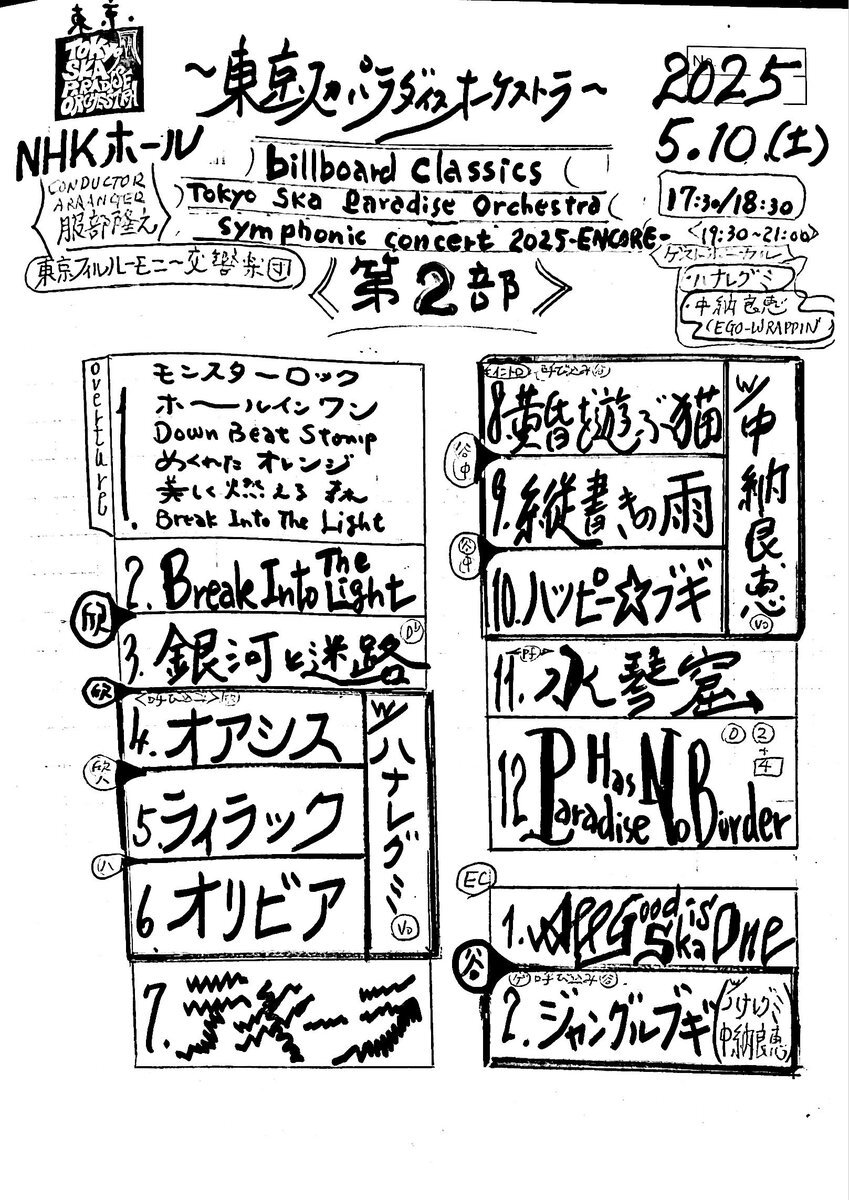 東京
TOKYO
SKA
PARADISE
ORCHESTRA
～東京スカパラダイスオーケストラ～
No.
2025
5.10.(土)
NHKホール
billboard classics
Tokyo Ska Paradise Orchestra
symphonic concert 2025-ENCORE-
CONDUCTOR
ARRANGER
服部隆之
東京フィルハーモニー交響楽団
17:30/18:30
<19:30～21:00>
ゲストボーカル
・ハナレグミ
・中納良恵
(EGO-WRAPPIN'
《第2部》
overture
1.
モンスターロック
ホールインワン
Down Beat Stomp
めくれたオレンジ
美しく燃える森
Break Into The Light
2. Break Into The Light
欣
3. 銀河と迷路
欣
<呼び込み>
4. オアシス
5. ライラック
ハ
6. オリビア
w/ハナレグミ
Vo
7.
呼び込み 谷
8. 黄昏を遊ぶ猫
谷
中
9. 縦書きの雨
谷
中
10. ハッピー☆ブギ
w/中納良恵
Vo
11. 水琴窟
12. Paradise Has No Border
D 2
+
4
EC
1. All Good Ska is One
谷
ゲ 呼び込み 谷
2. ジャングルブギ
(w/ハナレグミ
中納良恵)